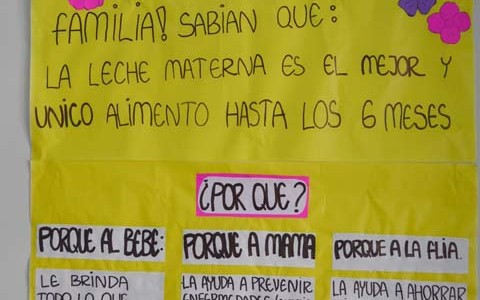 FAMILIA! SABIAN QUE:
LA LECHE MATERNA ES EL MEJOR Y
UNICO ALIMENTO HASTA LOS 6 MESES
¿POR QUE?
PORQUE AL BEBE:
PORQUE A MAMA
PORQUE A LA FLIA.
LE BRINDA
TODO LO QUE
LA AYUDA A PREVENIR
ENFERMEDADES
LA AYUDA A AHORRAR